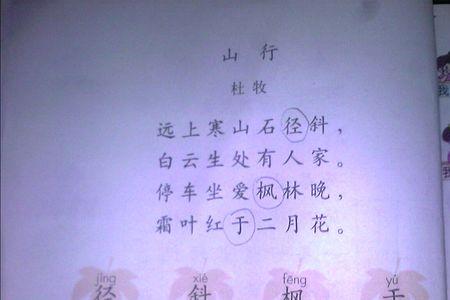 山行
杜牧
远上寒山石径斜，
白云生处有人家。
停车坐爱枫林晚，
霜叶红于二月花。
jìng xié fēng yú
径 斜 枫 于
我
我